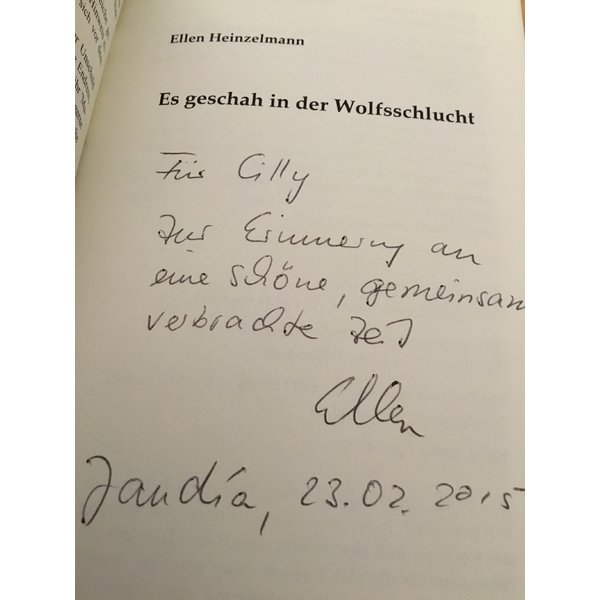 Ellen Heinzelmann
Es geschah in der Wolfsschlucht
Für Cilly
zur Erinnerung an
eine schöne, gemeinsam
verbrachte Zeit
Ellen
Jandía, 23.02.2015